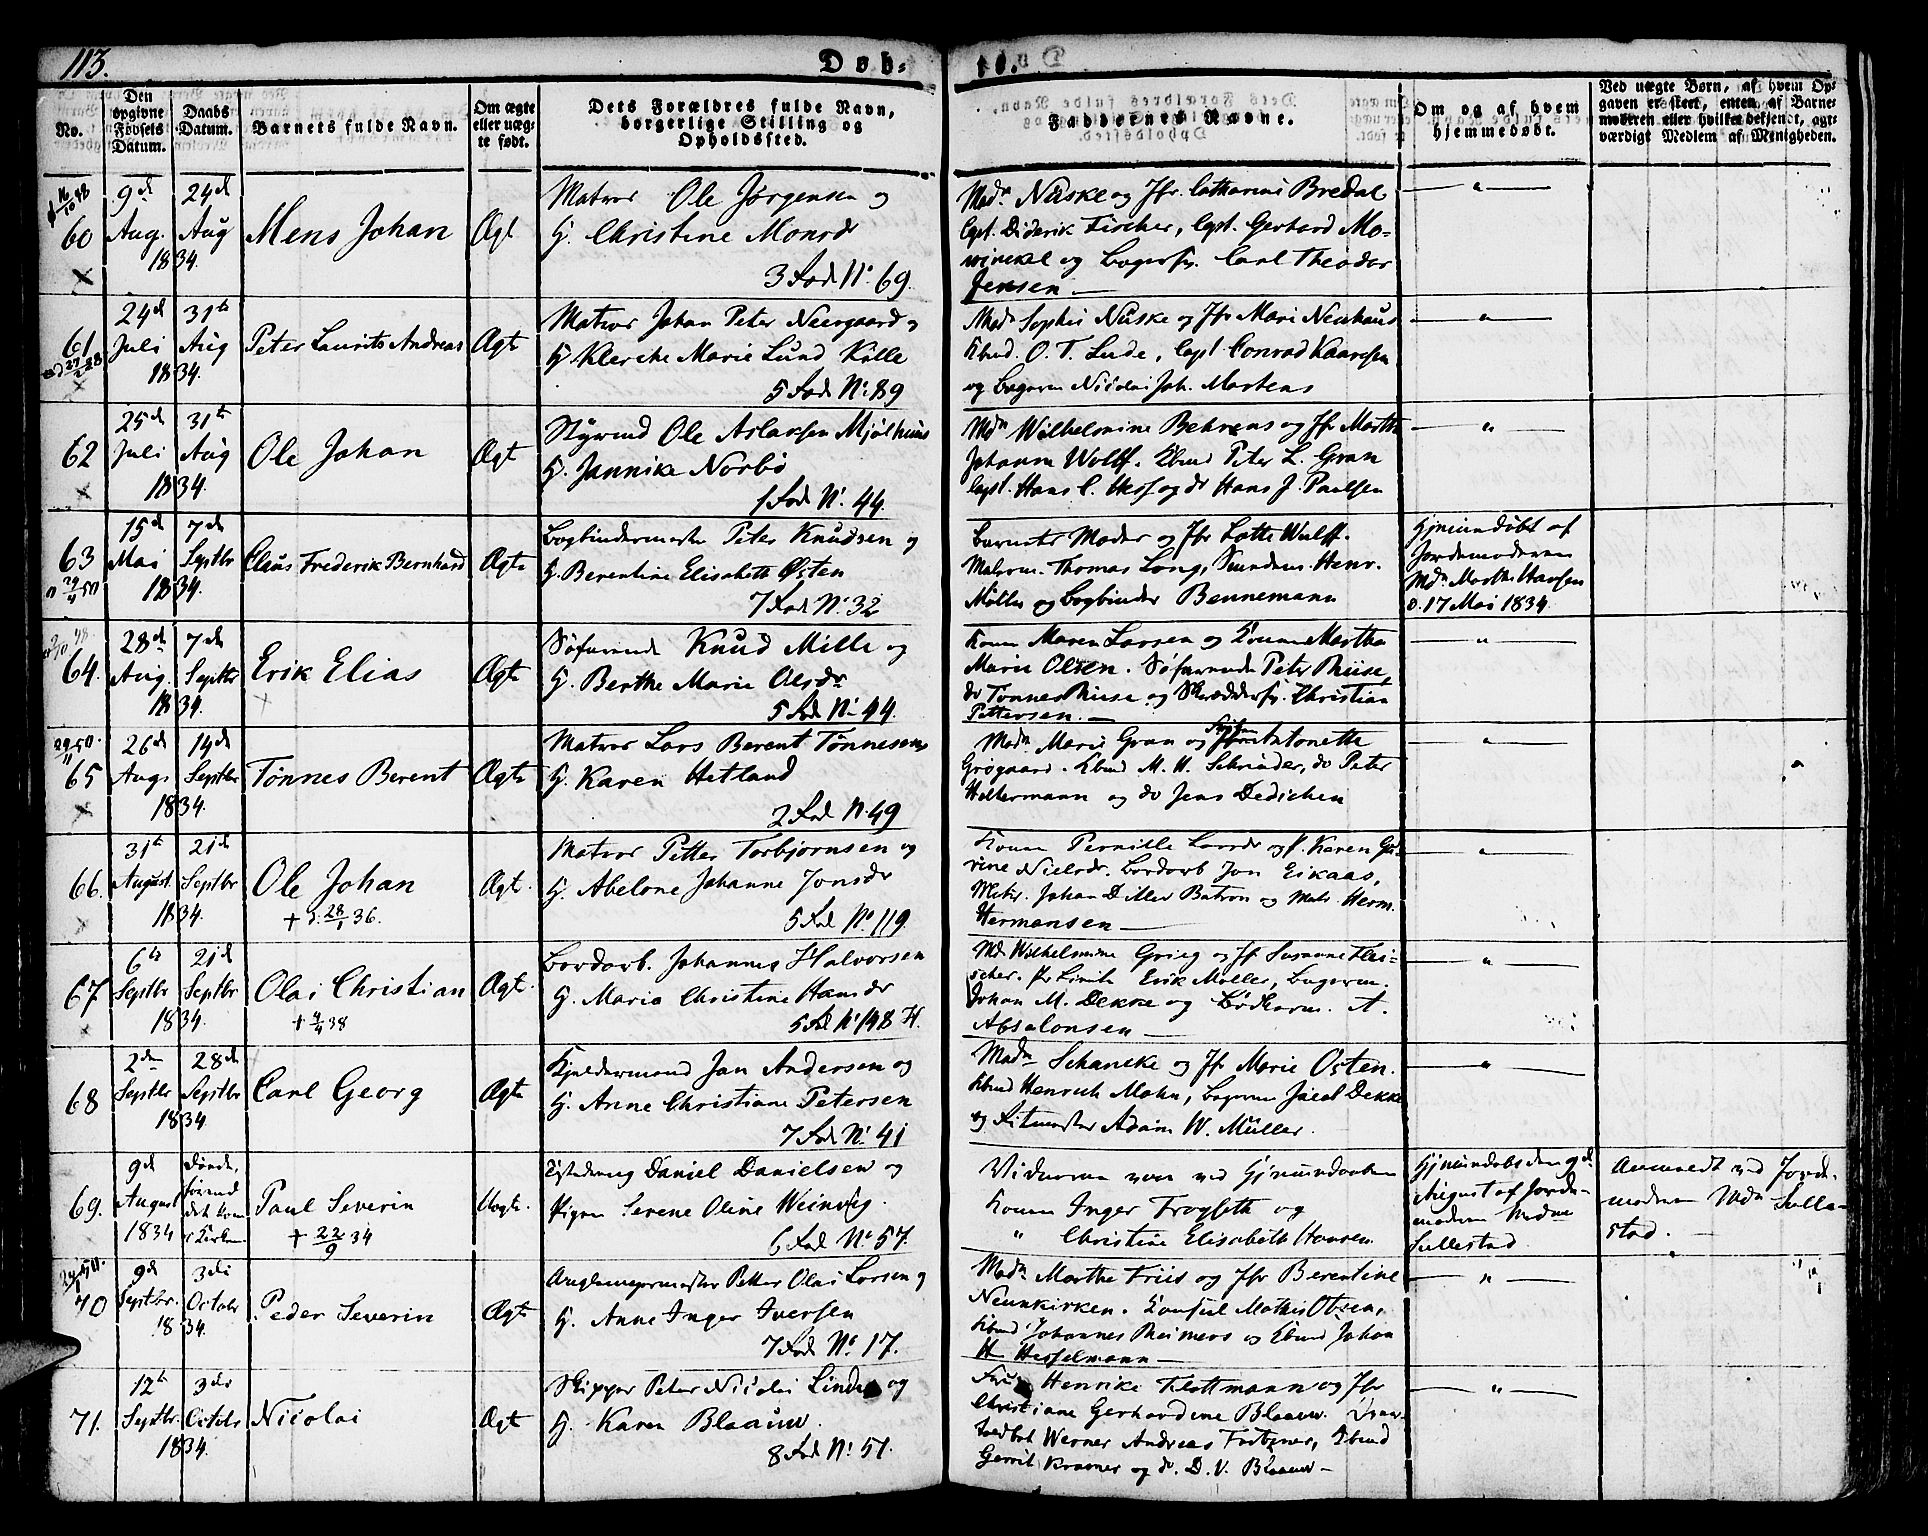 113.
Døb-
te.
No.
Den opgivne Fødsels Datum.
Daabs Datum.
Barnets fulde Navn.
Om ægte eller uægte født.
Dets Forældres fulde Navn, borgerlige Stilling og Opholdssted.
Faddernes Navne.
Om og af hvem hjemmedøbt.
Ved uægte Børn, af hvem Opgaven er skeet, enten af Barnemoderen eller hvilket bekjendt, agtværdigt Medlem af Menigheden.
60
9de Aug.
24de Aug
1834.
Mens Johan
Ægt
Matros Ole Jørgensen og
H. Christine Monsdr
3 Fod No. 69.
Madm Nuske og Jfr. Catharina Bredal
Capt. Diderik Fischer, Capt. Gerhard Mo-
winckel og Bagersv. Carl Theodor
Jensen
61
24de Juli
31te Aug
1834.
Peter Laurits Andreas
Ægte
Matros Johan Peter Neergaard og
H. Klerche Marie Lund Kalle
5 Fod No. 89
Mad. Sophie Nuske og Jfr Mari Neuhaus
Kbmd. O. T. Lude, Capt Conrad Kaarssen
og Bagersv Nicolai Joh. Martens
62
25de Juli
31te Aug
1834.
Ole Johan
Ægt
Styrmd Ole Aslaksen Mjølhuus
H. Jannike Norbø
1 Fod No. 44.
Mdm Wilhelmine Behrens og Jfr Marthe
Johanna Wolff. Kbmd Peter L. Gran
Capt. Hans C. Hess og do Hans J. Paulsen
63
15de Mai
7de Septbr
1834.
Claus Frederik Bernhard
Ægte
Bogbindermester Peter Knudsen og
H. Berentine Elisabeth Østen
7 Fod No. 32
Barnets Moder og Jfr Lotte Wulff.
Thomas Long, Henr.
Møller og Bogbinder Bennemann
Hjemmedøbt af
Jordemoderen
Mdm Marthe Hansen
d. 17 Mai 1834.
64.
28de Aug.
7de Septbr
1834.
Erik Elias
Ægte
Søfarende Knud Mille og
H. Berthe Marie Olsdr
5 Fod No. 44.
Konen Maren Larsen og Konen Martha
Marie Olsen. Søfarende Peter Riise,
do Tønnes Riise og Skræddersv. Christian
Pettersen.
65
26de Augs
14de Septbr
1834.
Tønnes Berent
Ægte
Matros Lars Berent Tønnesen
H. Karen Hetland
2 Fod No. 49
Madm. Marie Gran og Jfr Antonette
Grøgaard. Kbmd M. H. Schrøder, do Peter
Holtermann og do Jens Dedichen
66.
31te August
21de Septbr
1834.
Ole Johan
+ d. 28/1 36.
Ægt.
Matros Petter Torbjørnsen og
H. Abelone Johanne Jonsdr
5 Fod No. 119.
Konen Pernille Larsdr og P. Karen Gu-
rine Nielsdr. Bordarb Jon Eikaas,
Matr. Johan Diller Batron og Matr. Herm.
Hermansen
67
6te Septbr
21de Septbr
1834.
Olai Christian
+ 4/4 38
Ægt.
Bordarb. Johannes Halvorsen
H. Marie Christine Hansdr
5 Fod No 148 H.
Md. Wilhelmine Grieg og Jfr Susanne Flei-
scher. Erik Møller, Bagersv.
Johan M. Dekke og A.
Absalonsen
68
2den Septbr
28de Septbr
1834
Carl Georg
Ægte
Kjeldermand Jan Andersen og
H. Anne Christiane Petersen
7 Fod No. 41
Madm Schancke og Jfr Marie Osten.
Kbmd Henrich Mohn, Bagersv Jacob Dekke
og Ritmester Adam W. Müller.
69.
9de August
1834
Døde, førend det kom i Kirken
Paul Severin
+ 22/9 34
Uægte.
Daniel Danielsen og
Pigen Serene Oline Weinvig.
6 Fod No. 57.
Vidnerne vare ved Hjemmedaaben
Konen Inger Frogseth og
" Christine Elisabeth Hansen
Hjemmedøbt den 9de
August af Jorde-
moderen Madme
Sullestad
Anmeldt ved Jorde-
moderen Mdm Sulle-
stad.
70
9de Septbr.
3die Octobr
1834.
Peder Severin
Ægte
Petter Olai Larsen og
H. Anne Inger Iversen
7 Fod No. 17.
Madm Marthe Friis og Jfr Berentine
Neunkirken. Consul Mathis Olsen,
Kbmd. Johannes Reimers og Kbmd Johan
H Hesselmann
71.
12te Septbr.
3die Octobr
1834.
Nicolai
Ægt
Skipper Peter Nicolai Linde og
H. Karen Blaauw.
8 Fod No. 51.
Fru Henrike Flottmann og Jfr
Christiane Gerhardine Blaauw.
Werner Andreas Fortner, Kbmd
Gerrit Kramer og do. D. V. Blaauw